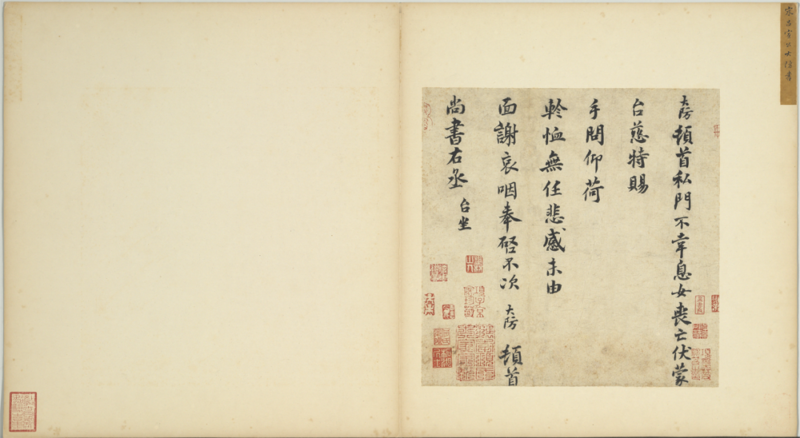 大防頓首私門不幸息女喪亡伏蒙
台慈特賜
手問仰荷
軫恤無任悲感未由
面謝哀咽奉啓不次 大防 頓首
尚書右丞 台坐